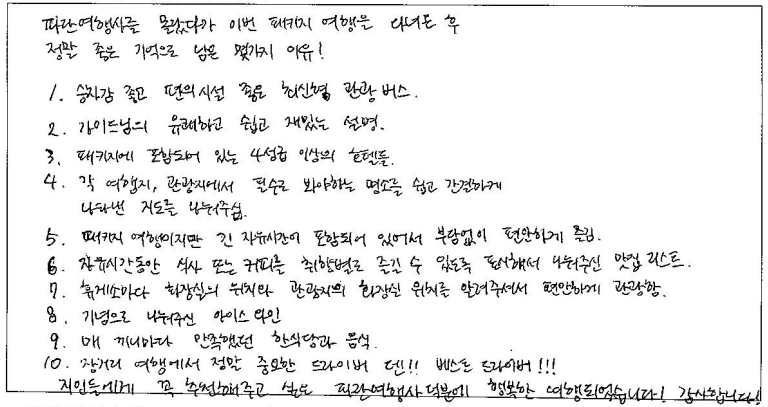 파란여행사를 몰랐다가 이번 패키지 여행을 다녀온 후
정말 좋은 기억으로 남은 몇가지 이유!
1. 승차감 좋고 편의시설 좋은 최신형 관광 버스.
2. 가이드님의 유쾌하고 쉽고 재밌는 설명.
3. 패키지에 포함되어 있는 4성급 이상의 호텔들.
4. 각 여행지, 관광지에서 필수로 봐야하는 명소를 쉽고 간결하게
나타낸 지도를 나눠주심.
5. 패키지 여행이지만 긴 자유시간이 포함되어 있어서 부담없이 편안하게 즐김.
6. 자유시간동안 식사 또는 커피를 취향별로 즐길 수 있도록 조사해서 나눠주신 맛집 리스트.
7. 휴게소마다 화장실의 위치와 관광지의 화장실 위치를 알려주셔서 편안하게 관광함.
8. 기념으로 나눠주신 아이스 와인
9. 매 끼니마다 만족했던 한식당과 음식.
10. 장거리 여행에서 정말 중요한 드라이버 덴!! 베스트 드라이버!!!
지인들에게 꼭 추천해주고 싶은 파란여행사 덕분에 행복한 여행되었습니다! 감사합니다!